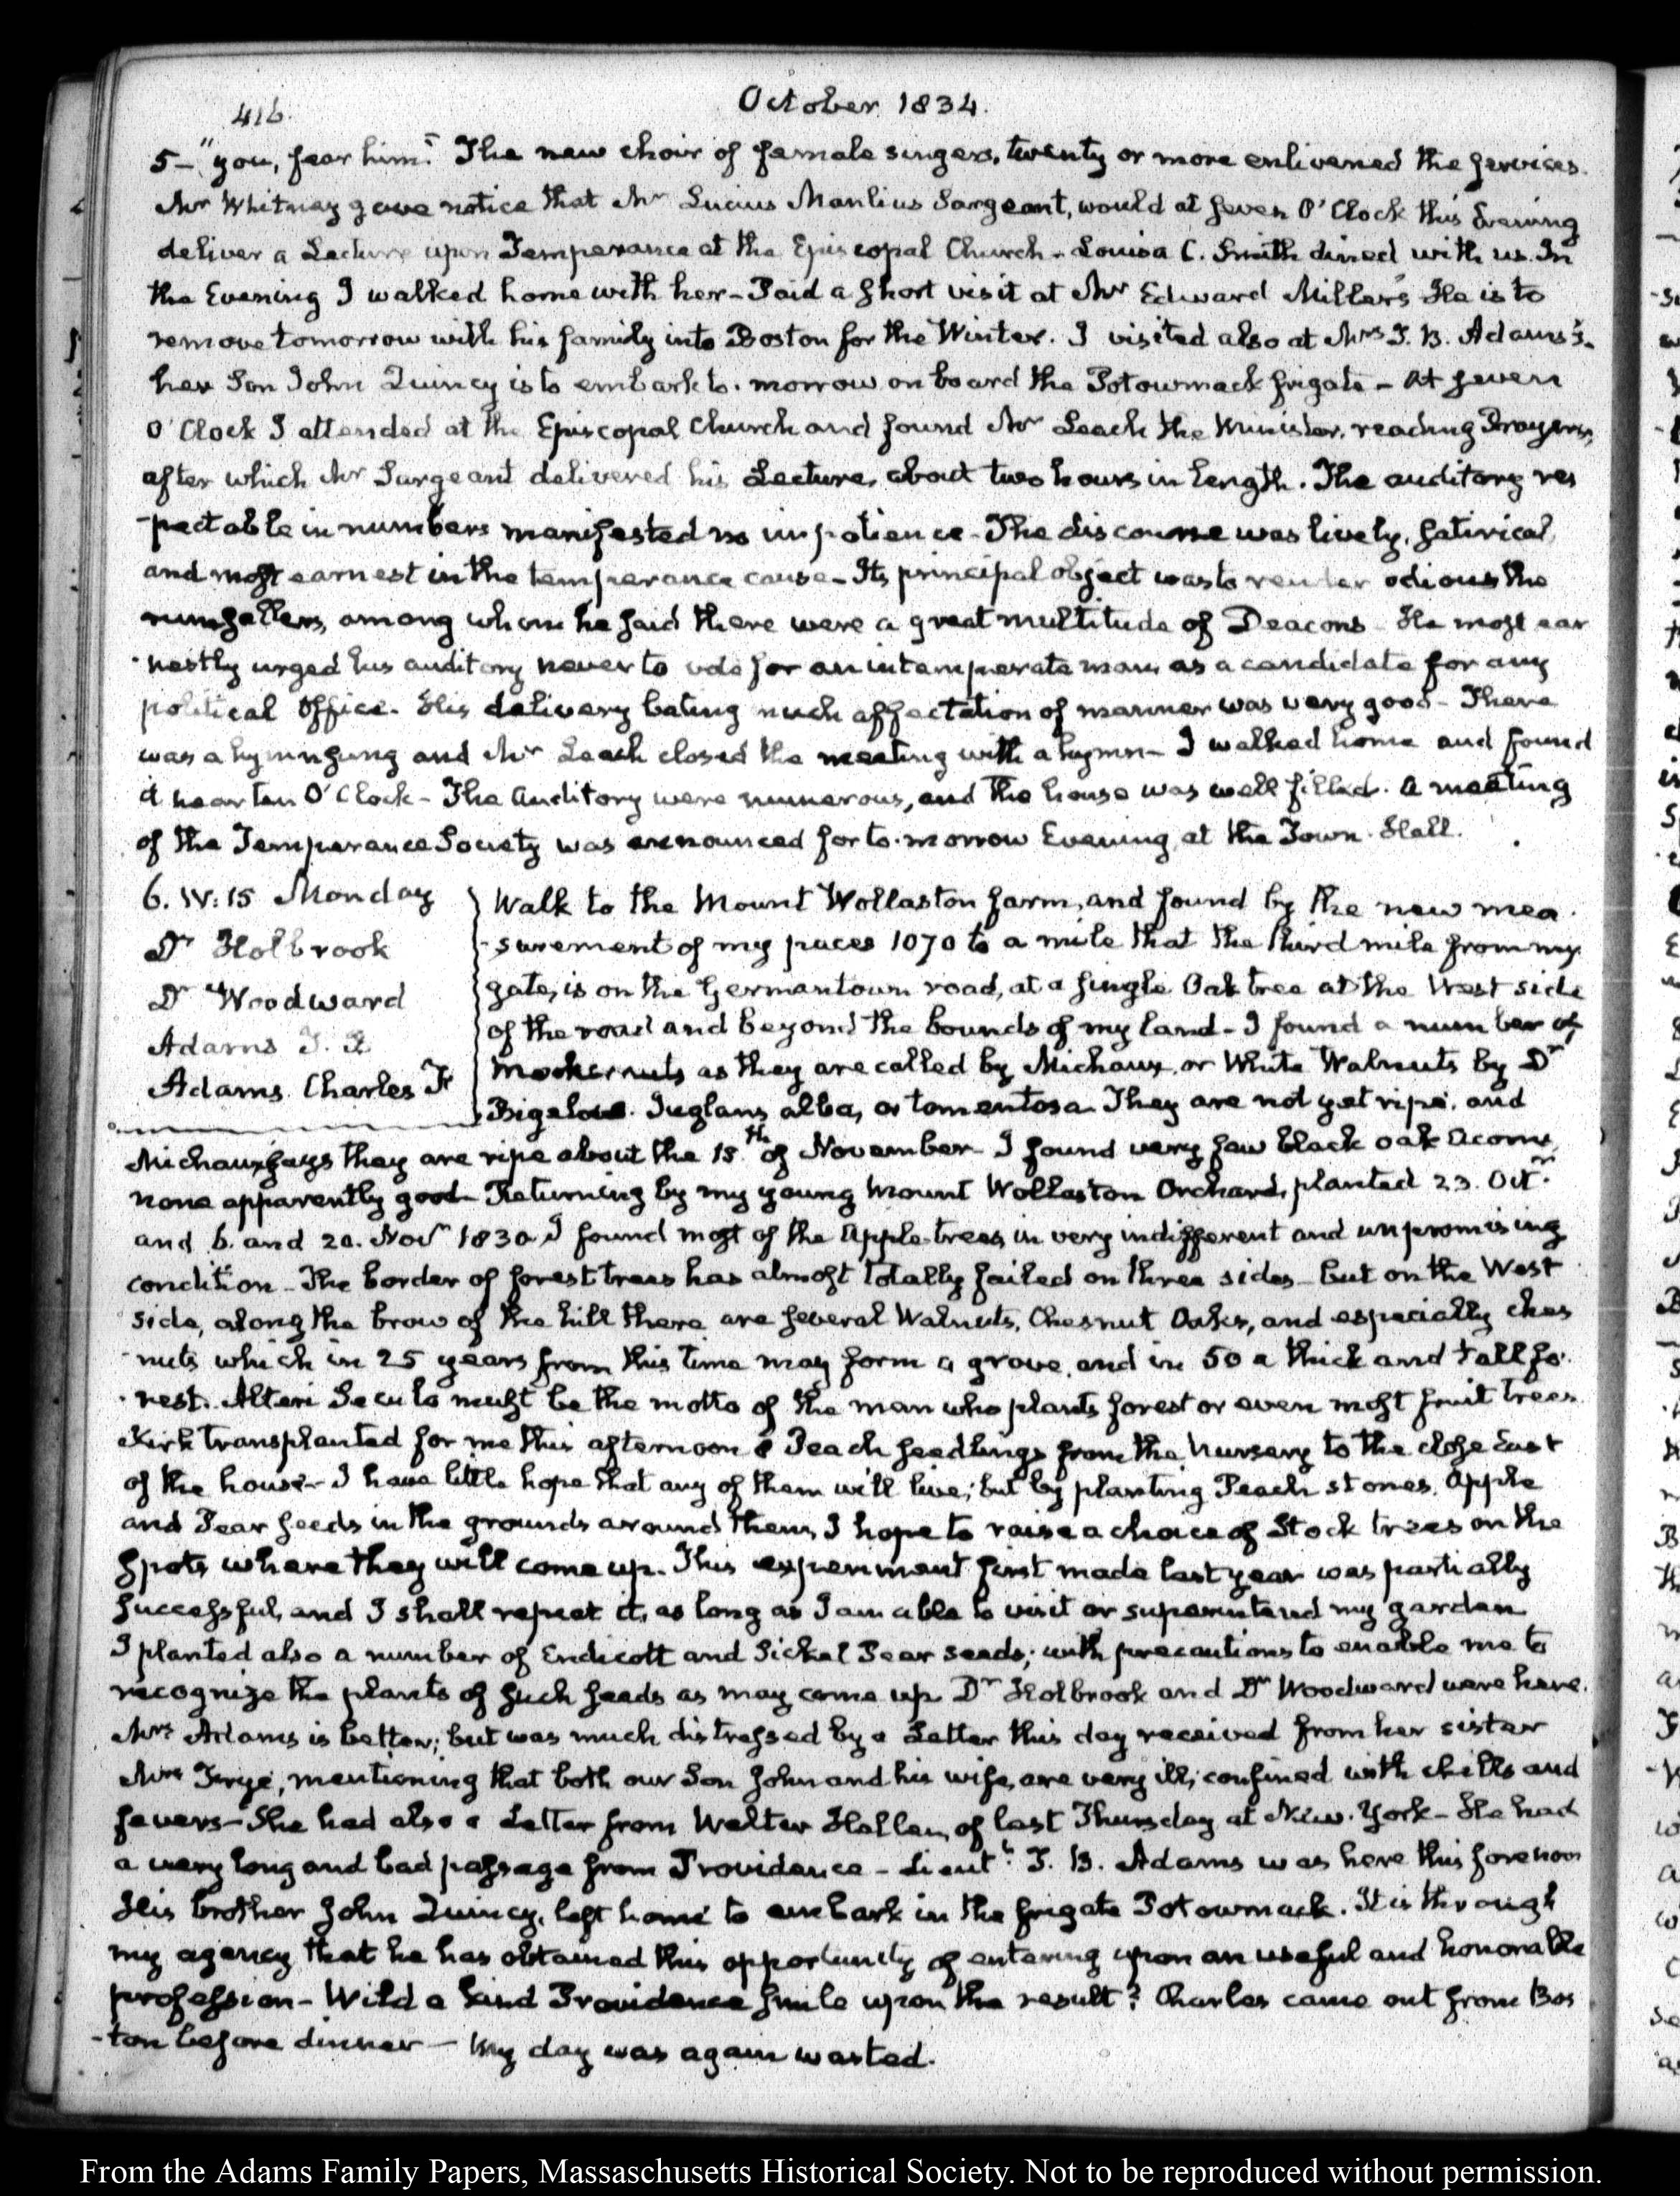 416.
October 1834.
5 – "you, fear him." The new choir of female singers, twenty or more enlivened the services.
Mr Whitney gave notice that Mr Lucius Manlius Sargeant, would at seven O'Clock this Evening
deliver a Lecture upon Temperance at the Episcopal Church – Louisa C. Smith dined with us. In
the Evening I walked home with her – Paid a short visit at Mr Edward Miller's He is to
remove tomorrow with his family into Boston for the Winter. I visited also at Mrs T. B. Adams's.
her Son John Quincy is to embark to-morrow on board the Potowmack frigate – At seven
O'Clock I attended at the Episcopal Church and found Mr Leach the Minister, reading Prayers,
after which Mr Sargeant delivered his Lecture, about two hours in length. The auditory res
-pectable in numbers manifested no impatience – The discourse was lively, satirical,
and most earnest in the temperance cause – Its principal object was to render odious the
rumsellers, among whom he said there were a great multitude of Deacons – He most ear
-nestly urged his auditory never to vote for an intemperate man, as a candidate for any
political Office. His delivery bating much affectation of manner was very good – There
was a hymn sung and Mr Leach closed the meeting with a hymn – I walked home and found
it near ten O'Clock – The Auditory were numerous, and the house was well filled. A meeting
of the Temperance Society was announced for to-morrow Evening, at the Town-Hall.
6. IV:15 Monday
Dr Holbrook
Dr Woodward
Adams T. B.
Adams. Charles F.
Walk to the Mount Wollaston farm, and found by the new mea
-surement of my paces 1070 to a mile that the third mile from my
gate, is on the Germantown road, at a single Oak tree at the West side
of the road and beyond the bounds of my land – I found a number of
Mockernuts as they are called by Michaux, or White Walnuts by Dr
Bigelow. Juglans alba, or tomentosa. They are not yet ripe, and
Michaux says they are ripe about the 15th of November – I found very few black oak Acorns
none apparently good – Returning by my young Mount Wollaston Orchard, planted 23. Octr
and 6. and 20. Novr 1830. I found most of the Apple-trees in very indifferent and unpromising
condition – The border of forest trees has almost totally failed on three sides – but on the West
side, along the brow of the hill there are several Walnuts, Chesnut Oaks, and especially ches
-nuts which in 25 years from this time may form a grove, and in 50 a thick and tall fo
-rest. Alteri Seculo must be the motto of the man who plants forest or even most fruit trees.
Kirk transplanted for me this afternoon 8 Peach seedlings from the Nursery to the close East
of the house – I have little hope that any of them will live; but by planting Peach stones, Apple
and Pear seeds in the grounds around them, I hope to raise a choice of Stock trees on the
spots where they will come up. This experiment first made last year was partially
successful, and I shall repeat it, as long as I am able to visit or superintend my garden
I planted also a number of Endicott and Sickel Pear seeds; with precautions to enable me to
recognize the plants of such seeds as may come up. Dr Holbrook and Dr Woodward were here.
Mrs Adams is better; but was much distressed by a Letter this day received from her sister
Mrs Frye, mentioning that both our Son John and his wife, are very ill; confined with chills and
fevers – She had also a Letter from Walter Hellen, of last Thursday at New-York – He had
a very long and bad passage from Providence – Lieutt T. B. Adams was here this forenoon
His brother John Quincy, left home to embark in the frigate Potowmack. It is through
my agency that he has obtained this opportunity of entering upon an useful and honorable
profession – Will a kind Providence smile upon the result? Charles came out from Bos
-ton before dinner – My day was again wasted.
From the Adams Family Papers, Massachusetts Historical Society. Not to be reproduced without permission.